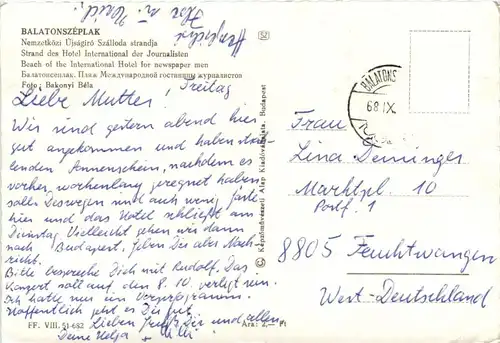 Herzlichst
BALATONSZÉPLAK
Nemzetközi Újságíró Szálloda strandja
Strand des Hotel International der Journalisten
Beach of the International Hotel for newspaper men
Балатонсеплак. Пляж Международной гостиницы журналистов
Foto: Bakonyi Béla
Freitag
Liebe Mutter!
Wir sind gestern abend hier
gut angekommen und haben strah-
lenden Sonnenschein, nachdem es
vorher wochenlang geregnet haben
soll. Deswegen sind auch wenig Gäste
hier und das Hotel schließt am
Dienstag. Vielleicht gehen wir dann
nach Budapest, geben Dir aber Nach-
richt.
Bitte bespreche Dich mit Rudolf. Das
Konzert soll auf den 8. 10. verlegt sein.
Ich hatte nur ein Vorprogramm.
Hoffentlich geht es Dir gut.
Lieben Gruß Dir und allen
Deine Helga + Willi
FF. VIII. 51-682
Ára: 2,— Ft
© Képzőművészeti Alap Kiadóvállalata, Budapest
BALATONS
68 IX.
Frau
Lina Deininger
Marktpl. 10
Postf. 1
8805 Feuchtwangen
West-Deutschland